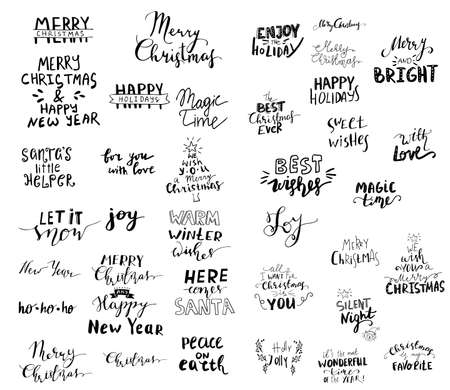 MERRY
CHRISTMAS
MERRY
CHRISTMAS
&
HAPPY
NEW YEAR
Santa's
little
HELPER
LET iT
snow
New Year
ho-ho-ho
Merry
Christmas
Merry
Christmas
HAPPY
HOLIDAYS
Magic
Time
for you
with love
WE
WISH
Y.O.U
a Merry
Christmas
joy
WARM
WINTER
wishes
MERRY
Christmas
AND
Happy
New Year
HERE
comes
SANTA
Christmas
PEACE
ON
earth
ENJOY
the
HOLIDAY
Merry Christmas
Merry
Christmas
Merry
AND
BRIGHT
The
BEST
Christmas
EVER
HAPPY
HOLIDAYS
SWEET
wishes
with
Love
BEST
wishes
MAGIC
time
Joy
MERRY
CHRISTMAS
we
wish
you a
Merry
CHRISTMAS
all
I WANT for
Christmas
is
YOU
SILENT
Night
Holly
Jolly
it's the most
WONDERFUL
time
OF THE YEAR!
Christmas
is my
FAVORITE